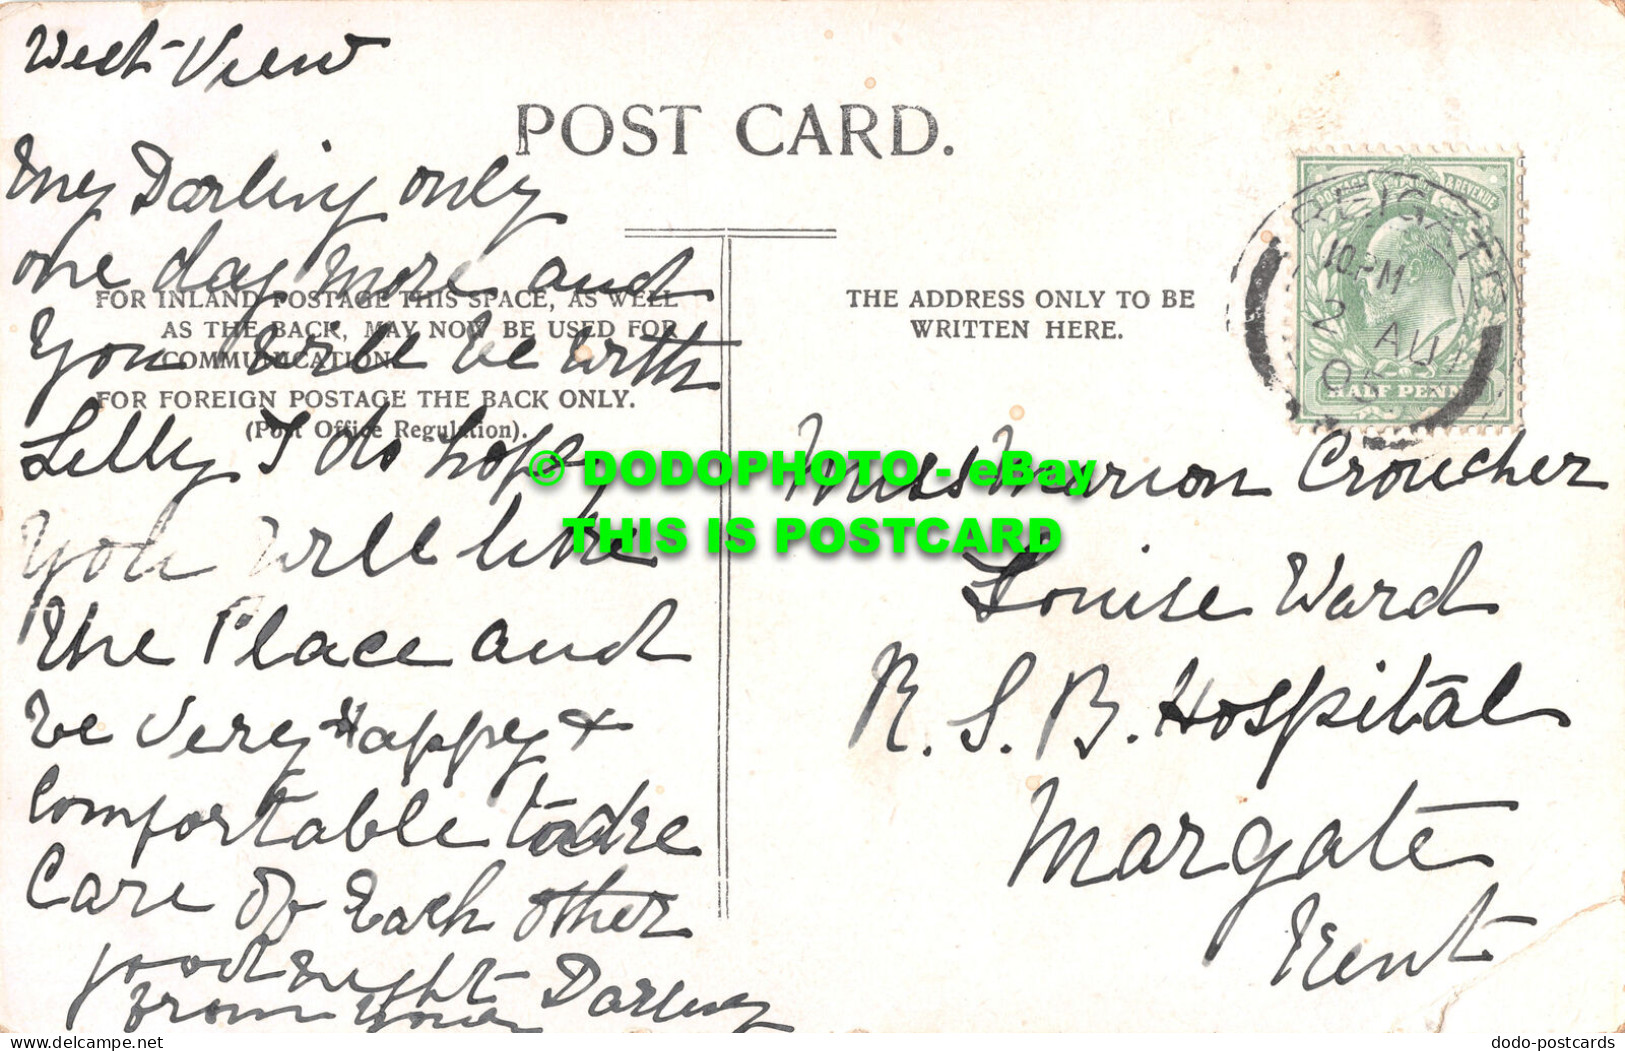 West View
My Darling only
one day more and
You will be with
Lilly I do hope
you will like
the Place and
be very Happy &
Comfortable
Care of Each other
good night Darling
from your
POST CARD.
FOR INLAND POSTAGE THIS SPACE, AS WELL
AS THE BACK, MAY NOW BE USED FOR
COMMUNICATION.
FOR FOREIGN POSTAGE THE BACK ONLY.
(Post Office Regulation).
THE ADDRESS ONLY TO BE
WRITTEN HERE.
POSTAGE & REVENUE
HALF PENNY
REIGATE
10 PM
2 AU
05
© DODOPHOTO - eBay
THIS IS POSTCARD
Miss Marion Croucher
Louise Ward
R. S. B. Hospital
Margate
Kent
www.delcampe.net
dodo-postcards